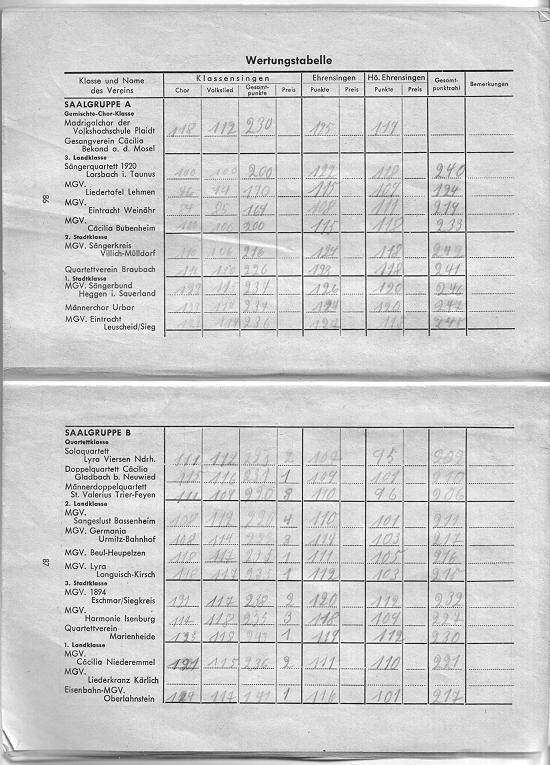 Wertungstabelle
Klasse und Name des Vereins Klassensingen Ehrensingen Hö. Ehrensingen Gesamt-punktzahl Bemerkungen
Chor Volkslied Gesamt-punkte Preis Punkte Preis Punkte Preis
SAALGRUPPE A
Gemischte-Chor-Klasse
Madrigalchor der
Volkshochschule Plaidt 118 112 230 125 119
Gesangverein Cäcilia
Bekond a. d. Mosel
3. Landklasse
Sängerquartett 1920
Lorsbach i. Taunus 100 100 200 122 118 240
MGV.
Liedertafel Lehmen 115 109
MGV.
Eintracht Weinähr 85 169 108 111 219
MGV.
Cäcilia Bubenheim 100 200 115 118 233
2. Stadtklasse
MGV. Sängerkreis
Villich-Mülldorf 106 216 124 118 242
Quartettverein Braubach 226 123 118 241
1. Stadtklasse
MGV. Sängerbund
Heggen i. Sauerland 122 115 237 126 120 246
Männerchor Urbar 124 120
MGV. Eintracht
Leuscheid/Sieg 236 127 118 245
86
SAALGRUPPE B
Quartettklasse
Soloquartett
Lyra Viersen Ndrh. 111 112 223 2 107 95
Doppelquartett Cäcilia
Gladbach b. Neuwied 116 1 109 101 210
Männerdoppelquartett
St. Valerius Trier-Feyen 111 109 220 110 96 206
2. Landklasse
MGV.
Sangeslust Bassenheim 4 110 101 211
MGV. Germania
Urmitz-Bahnhof 114 3 114 103 217
MGV. Beul-Heupelzen 118 117 235 1 111 105 216
MGV. Lyra
Longuisch-Kirsch 117 1 112 103 215
3. Stadtklasse
MGV. 1894
Eschmar/Siegkreis 121 117 238 2 120 112 232
MGV.
Harmonie Isenburg 117 118 235 3 118 109 227
Quartettverein
Marienheide 118 1 112 230
1. Landklasse
MGV.
Cäcilia Niederemmel 121 115 236 2 111 110 221
MGV.
Liederkranz Kärlich
Eisenbahn-MGV.
Oberlahnstein 124 117 1 116 101 217
87